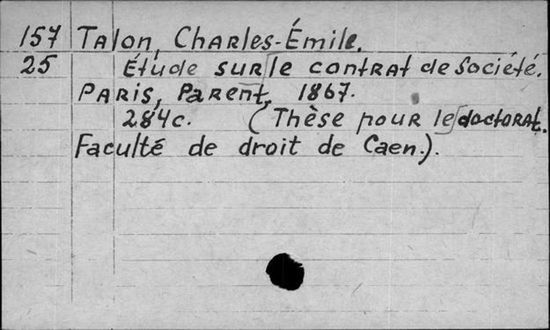 157 Talon, Charles-Émile.
25 Étude sur le contrat de Société.
Paris, Parent, 1867.
284c. (Thèse pour le doctorat.
Faculté de droit de Caen.).